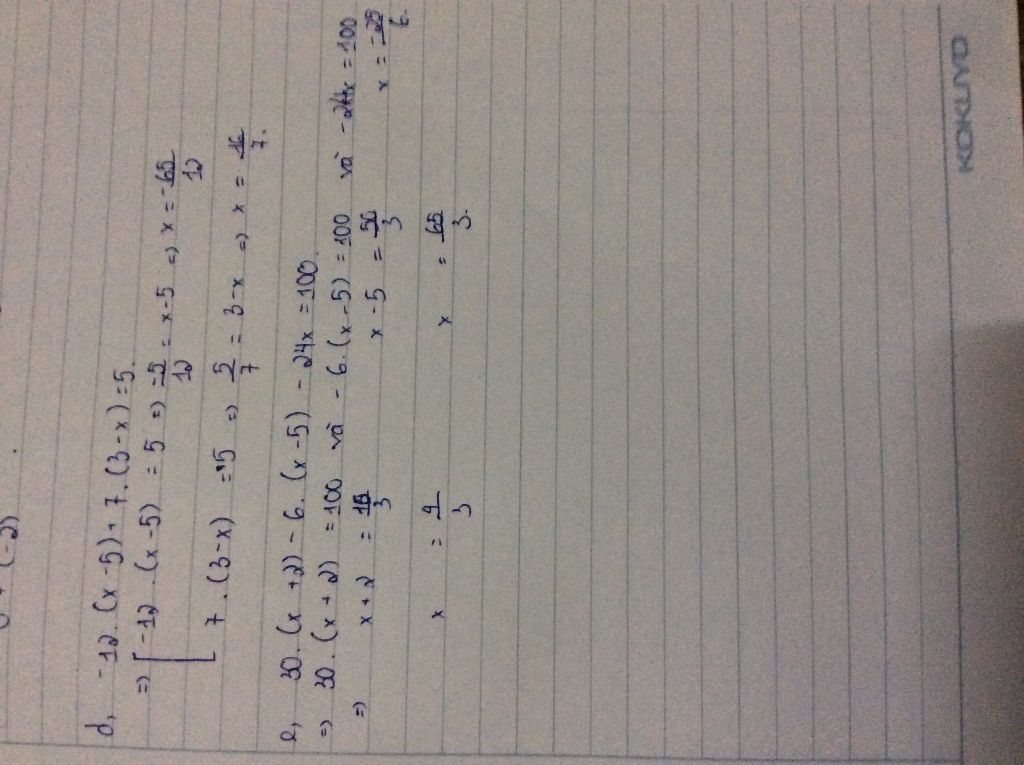 + (-2)
d, -12.(x-5)+7.(3-x)=5.
=> [ -12.(x-5) = 5 => -5/12 = x-5 => x = -65/12
7.(3-x) = 5 => 5/7 = 3-x => x = 16/7.
e, 30.(x+2)-6.(x-5)-24x=100.
=> 30.(x+2) = 100 và -6.(x-5)=100 và -24x=100
=> x+2 = 10/3 x-5 = 50/3 x = -25/6.
x = 4/3 x = 65/3.
KOKUYO